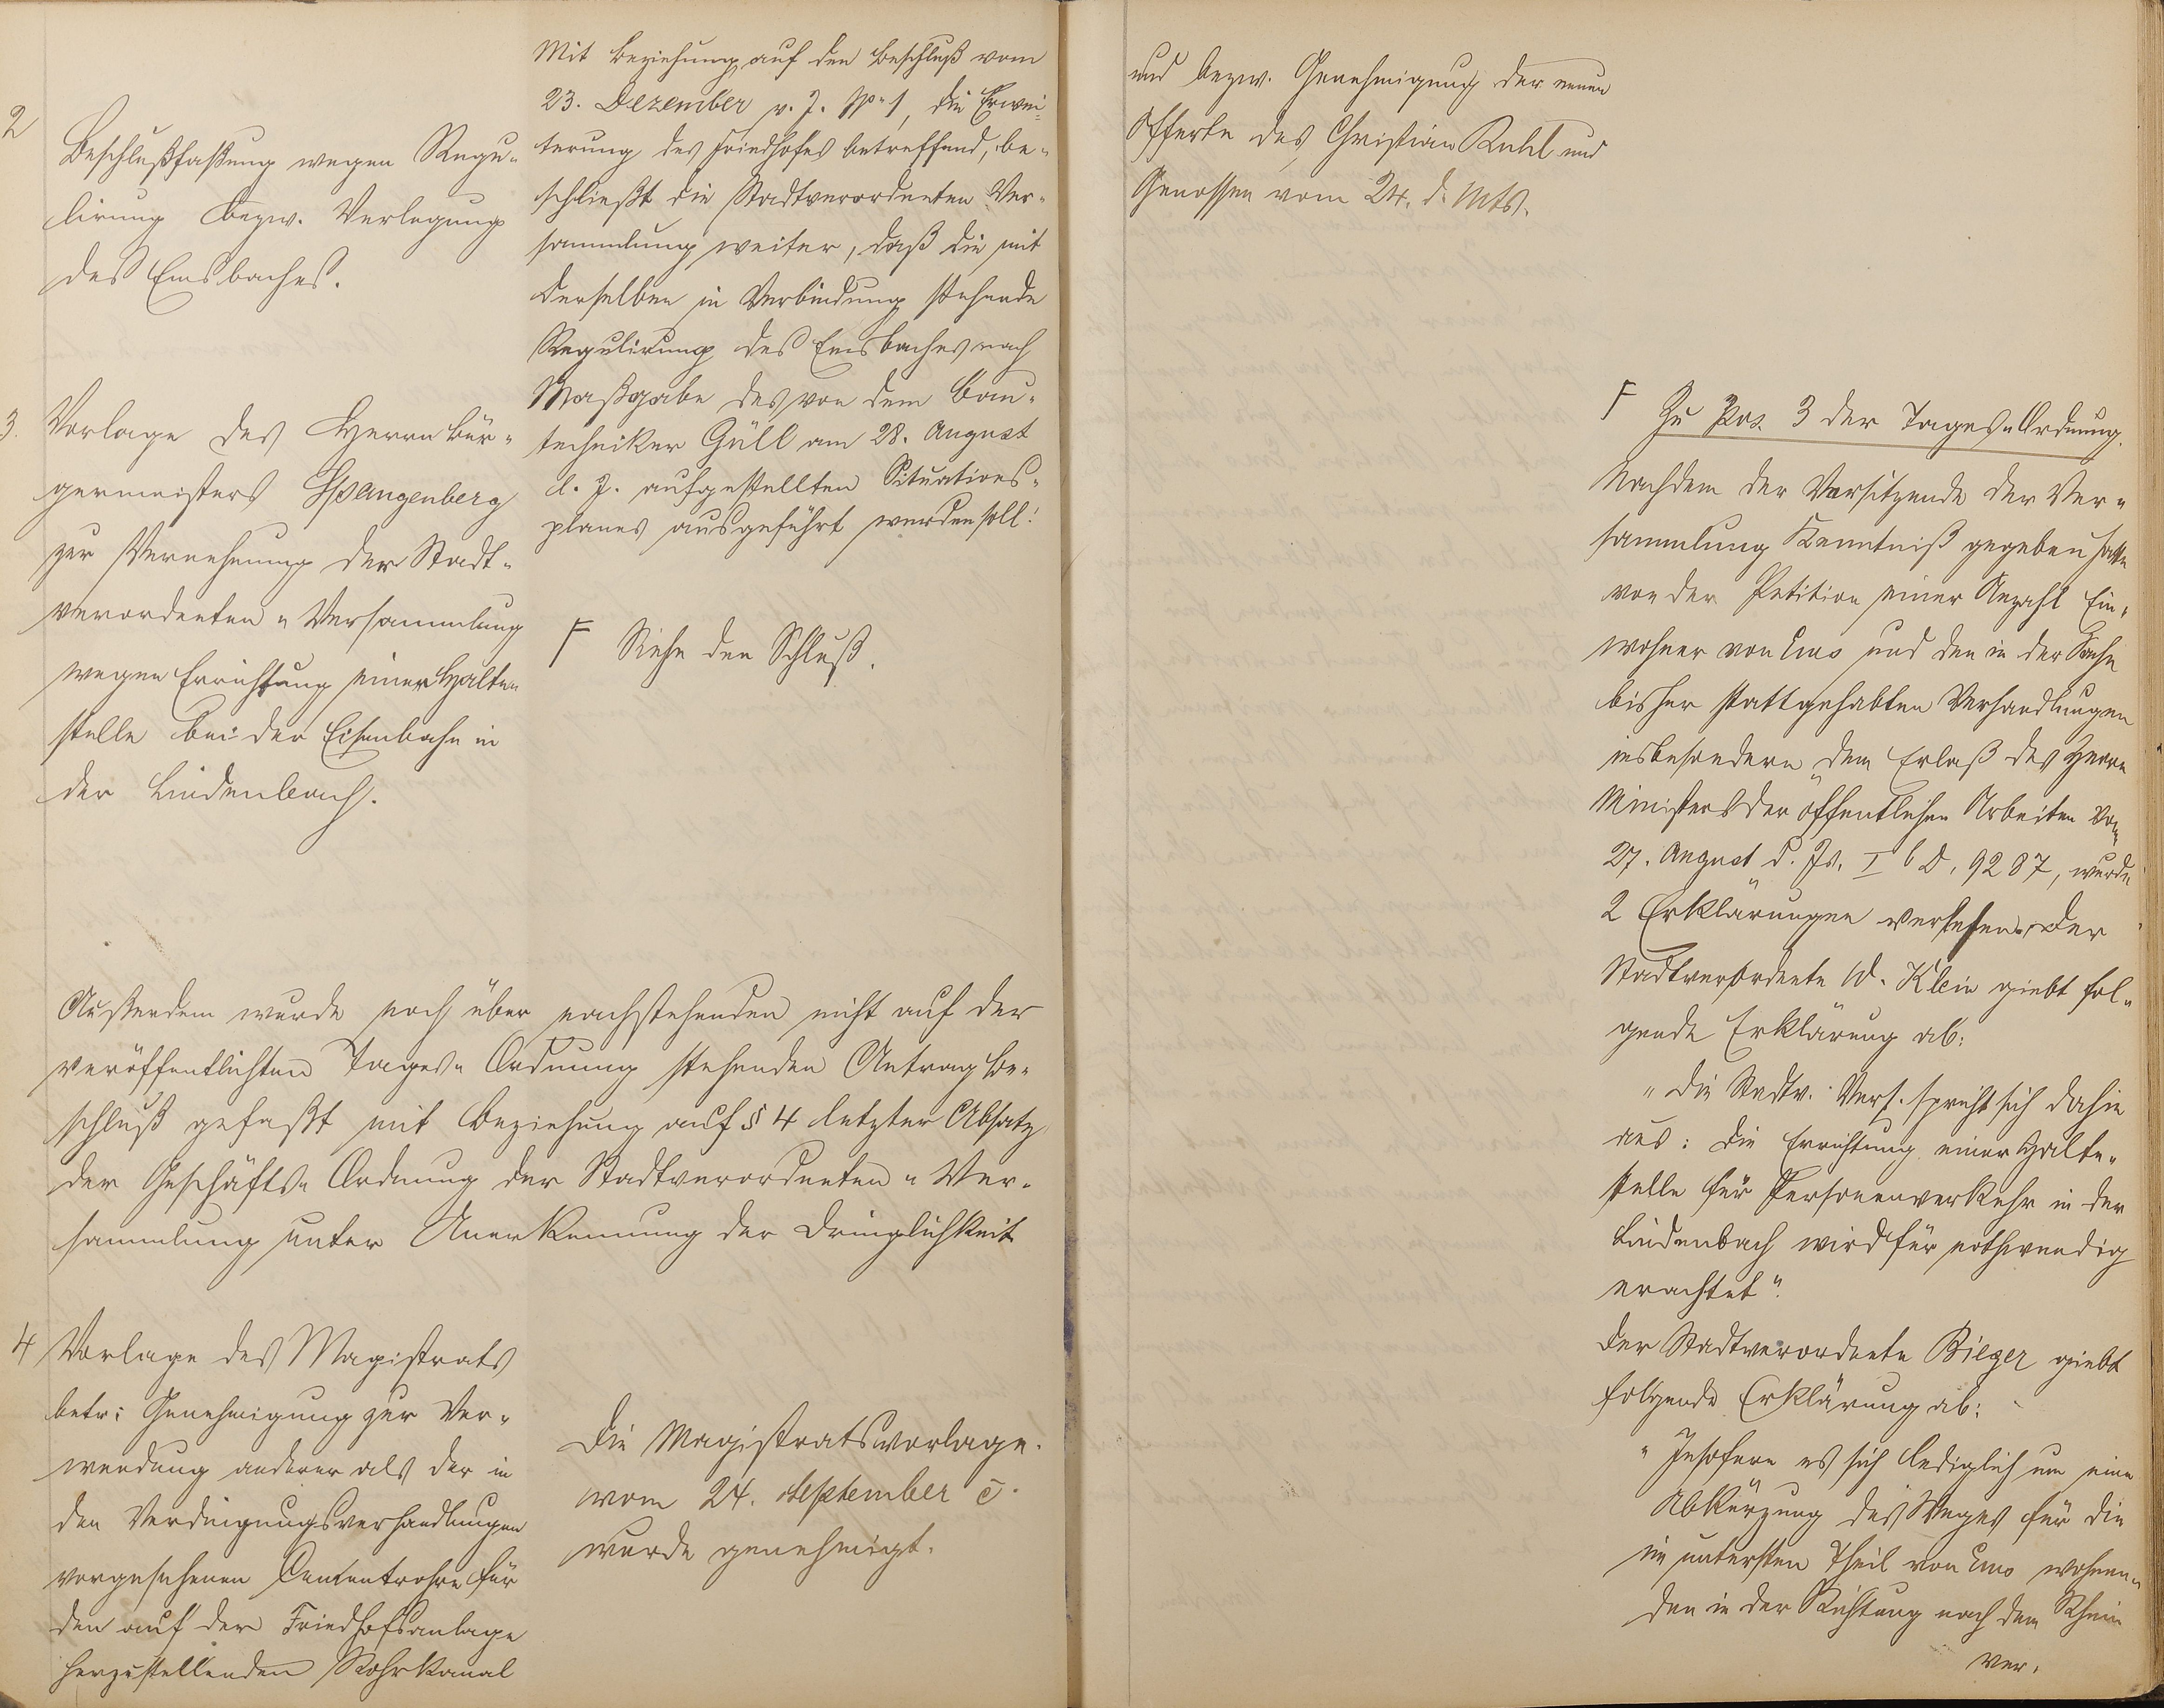 2
Beschlußfaßung wegen Regu-
lirung bezw. Verlegung
des Emsbaches.
Mit Beziehung auf den Beschluß vom
23. Dezember v. J. No 1, die Erwei-
terung des Friedhofes betreffend, be-
schließt die Stadtverordneten Ver-
sammlung weiter, daß die mit
derselben in Verbindung stehende
Regulirung des Emsbaches nach
Maßgabe des von dem Bau-
techniker Güll am 28. August
l. J. aufgestellten Situations-
planes ausgeführt werden soll!
3.
Vorlage des Herrn Bür-
germeisters Spangenberg
zur Vernehmung der Stadt-
verordneten-Versammlung
wegen Errichtung einer Halte-
stelle bei der Eisenbahn in
der Lindenbach.
F Siehe den Schluß.
Außerdem wurde noch über nachstehenden nicht auf der
veröffentlichten Tages-Ordnung stehenden Antrag Be-
schluß gefaßt mit Beziehung auf § 4 letzter Absatz
der Geschäfts-Ordnung der Stadtverordneten-Ver-
sammlung unter Anerkennung der Dringlichkeit
4
Vorlage des Magistrats
betr: Genehmigung zur Ver-
wendung anderer als der in
den Verdingungsverhandlungen
vorgesehenen Cementrohre für
den auf der Friedhofsanlage
herzustellenden Rohrkanal
Die Magistratsvorlage
vom 24. September c.
wurde genehmigt.
und bezw. Genehmigung der neuen
Offerte des Christian Ruhl und
Genossen vom 24. d. Mts.
F Zu Pos. 3 der Tages-Ordnung.
Nachdem der Vorsitzende der Ver-
sammlung Kenntniß gegeben hatte
von der Petition einer Anzahl Ein-
wohner von Ems und den in der Sache
bisher stattgehabten Verhandlungen
insbesondere dem Erlaß des Herrn
Ministers der öffentlichen Arbeiten vom
27. August d. Js. I b D. 9287, wurde
2 Erklärungen verlesen. Der
Stadtverordnete W. Klein giebt fol-
gende Erklärung ab:
"Die Stadtv. Vers. spricht sich dahin
aus: Die Errichtung einer Halte-
stelle für Personenverkehr in der
Lindenbach wird für nothwendig
erachtet".
Der Stadtverordnete Bieger giebt
folgende Erklärung ab:
"Insofern es sich lediglich um eine
Abkürzung des Weges für die
im untersten Theil von Ems wohnen-
den in der Richtung nach dem Rhein
ver-